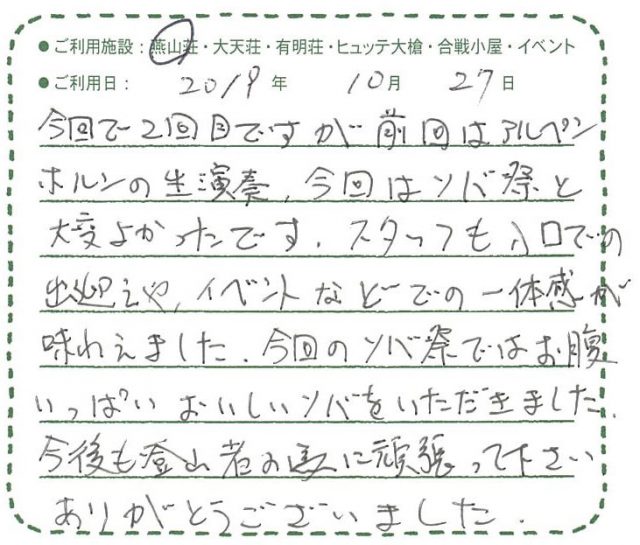 ●ご利用施設：燕山荘・大天荘・有明荘・ヒュッテ大槍・合戦小屋・イベント
●ご利用日： 2019年 10月 27日
今回で2回目ですが前回はアルペン
ホルンの生演奏、今回はソバ祭と
大変よかったです．スタッフも入口での
出迎えや，イベントなどでの一体感が
味わえました．今回のソバ祭ではお腹
いっぱいおいしいソバをいただきました．
今後も登山者の為に頑張って下さい
ありがとうございました．